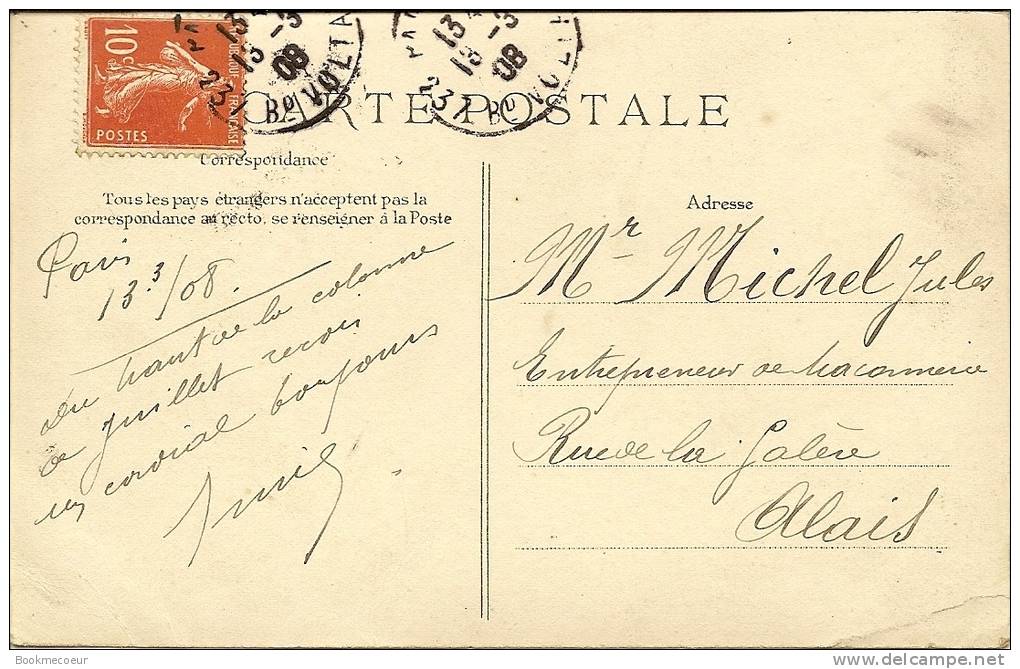 10c
REPUBLIQUE FRANÇAISE
POSTES
13
13 -3
08
231 Bd VOLTA
13
13 -3
08
231 Bd VOLT
CARTE POSTALE
Correspondance
Tous les pays étrangers n'acceptent pas la
correspondance au recto, se renseigner à la Poste
Paris
13.3/08.
Du haut de la colonne
de Juillet reçois
un cordial bonjour
Adresse
Mr Michel Jules
Entrepreneur de maconnerie
Rue de la Galère
Alais
Bookmecoeur
www.delcampe.net